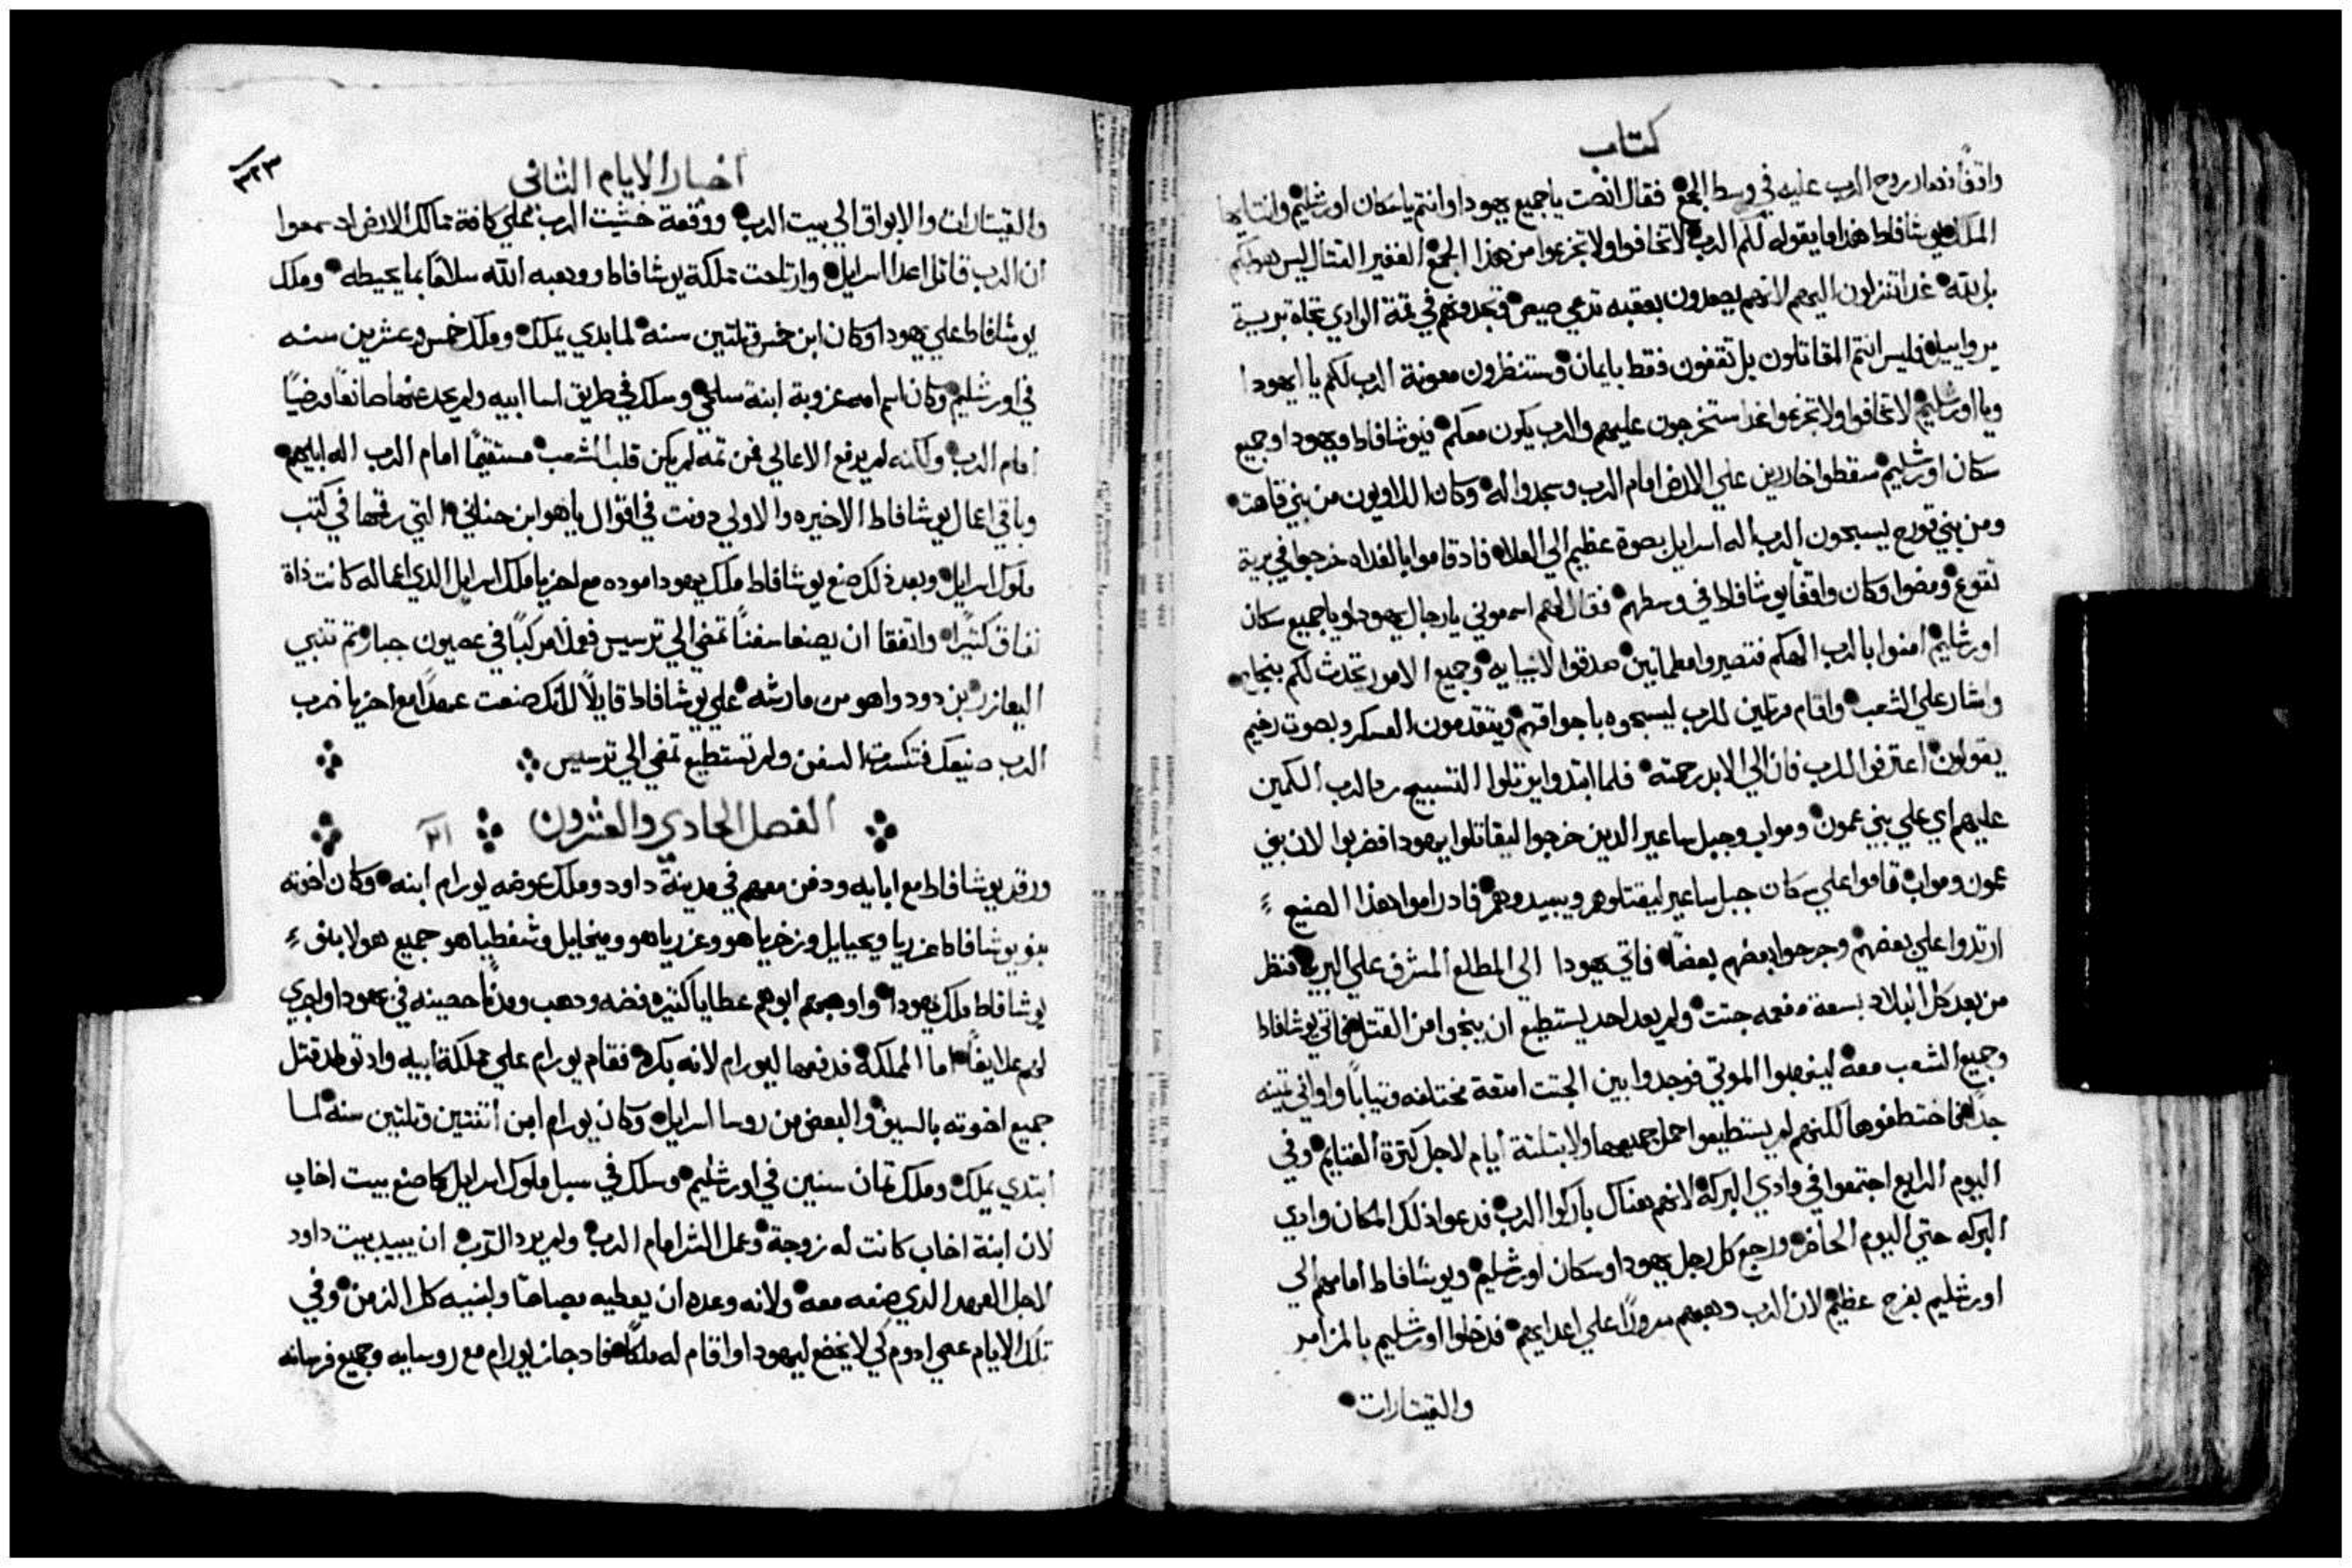 كتاب
واقفًا فصار روح الرب عليه في وسط الجمع فقال انصت يا جميع يهودا وانتم يا سكان اورشليم وانت ايها
الملك يوشافاط هذا ما يقوله لكم الرب لا تخافوا ولا تجزعوا من هذا الجمع الغفير القتال ليس هو لكم
بل لله غدا تنزلون اليهم لانهم يصعدون بعقبه تدعي صيص فتجدونهم في قمة الوادي تجاه برية
يروابيل فليس انتم المقاتلون بل تقفون فقط بايمان وستنظرون معونة الرب لكم يا يهودا
ويا اورشليم لا تخافوا ولا تجزعوا غدا ستخرجون عليهم والرب يكون معكم فيوشافاط ويهودا وجميع
سكان اورشليم سقطوا خارين علي الارض امام الرب وسجدوا له وكان اللاويون من بني قاهت
ومن بني قورح يسبحون الرب اله اسرايل بصوة عظيم الي العلاء فاد قاموا بالغداه خرجوا في برية
تقوع ومضوا وكان واقفًا يوشافاط في وسطهم فقال لهم اسمعوني يا رجال يهودا ويا جميع سكان
اورشليم امنوا بالرب الهكم فتصيروا مطمانين صدقوا لانبيايه وجميع الامور تحدث لكم بنجاح
واشار علي الشعب واقام مرتلين للرب ليسبحوه باجواقهم ويتقدمون العسكر وبصوت رخيم
يقولون اعترفوا للرب فان الي الابد رحمته فلما ابتدوا يرتلوا التسبيح رد الرب الكمين
عليهم اي علي بني عمون ومواب وجبل ساعير الدين خرجوا ليقاتلوا يهودا فضربوا لان بني
عمون ومواب قاموا علي سكان جبل ساعير ليقتلوهم ويبيدوهم فاد راموا هذا الصنيع
ارتدوا علي بعضهم وجرحوا بعضهم بعضًا فاتي يهودا الى المطلع المشرف علي البريه فنظر
من بعد كل البلاد بسعة مفعمه جتت ولم يعد احد يستطيع ان ينجوا من القتل فاتي يوشافاط
وجميع الشعب معه لينهبوا الموتي فوجدوا بين الجتت امتعة مختلفه وتيابًا واواني تمينه
جدًا فاختطفوها لكنهم لم يستطيعوا حمل جميعها ولا بتلتة ايام لاجل كترة الغنايم وفي
اليوم الرابع اجتمعوا في وادي البركة لانهم هناك باركوا الرب فدعوا ذلك المكان وادي
البركه حتي اليوم الحاضر ورجع كل رجل يهودا وسكان اورشليم ويوشافاط امامهم الي
اورشليم بفرح عظيم لان الرب وهبهم سرورًا علي اعدايهم فدخلوا اورشليم بالمزامر
والقيتارات
اخبار الايام الثانى
٣٢٣
والقيتارات والابواق الي بيت الرب ووقعة خشيت الرب علي كافة ممالك الارض اد سمعوا
ان الرب قاتل اعدا اسرايل وارتاحت مملكة يوشافاط ووهبه الله سلامًا بما يحيطه وملك
يوشافاط علي يهودا وكان ابن خمس وتلتين سنه لما بدي يملك وملك خمس وعشرين سنه
في اورشليم وكان اسم امه عزوبة ابنة سلحي وسلك في طريق اسا ابيه ولم يحد عنها صانعًا مرضيًا
امام الرب ولكنه لم يرفع الاعالي فمن تمه لم يكن قلب الشعب مستقيمًا امام الرب اله ابايهم
وباقي اعمال يوشافاط الاخيره والاولي دونت في اقوال ياهو ابن حناني التي رقمها في كتب
ملوك اسرايل وبعد ذلك صنع يوشافاط ملك يهودا موده مع احزيا ملك اسرايل الدي اعماله كانت ذاة
نفاق كثيرًا واتفقا ان يصنعا سفنًا تمضي الي ترسيس فعملا مركبًا في عصيون جبار تم تنبي
اليعازر بن دودواهو من مارشه علي يوشافاط قايلًا لانك صنعت عهدًا مع احزيا ضرب
الرب صنيعك فتكسرت السفن ولم تستطيع تمضي الي ترسيس
الفصل الحادي والعشرون ٢١
ورقد يوشافاط مع ابايه ودفن معهم في مدينة داود وملك عوضه يورام ابنه وكان اخوته
بنو يوشافاط عزريا ويحيايل وزخرياهو وعزرياهو وميخايل وشفطياهو جميع هولا بنو
يوشافاط ملك يهودا واوهبهم ابوهم عطايا كتيره فضه ودهب ومدنًا حصينه في يهودا واجري
لهم علايفًا اما المملكة فدفعها ليورام لانه بكره فقام يورام علي مملكة ابيه واد توطد قتل
جميع اخوته بالسيف والبعض من روسا اسرايل وكان يورام ابن اتنتين وتلتين سنه لما
ابتدي يملك وملك تمان سنين في اورشليم وسلك في سبل ملوك اسرايل كما صنع بيت اخاب
لان ابنة اخاب كانت له زوجة وعمل الشر امام الرب ولم يرد الرب ان يبيد بيت داود
لاجل العهد الدي صنعه معه ولانه وعده ان يعطيه مصباحًا ولبنيه كل الزمن وفي
تلك الايام عصي ادوم كي لا يخضع ليهودا واقام له ملكًا فاد جاز يورام مع روسايه وجميع فرسانه